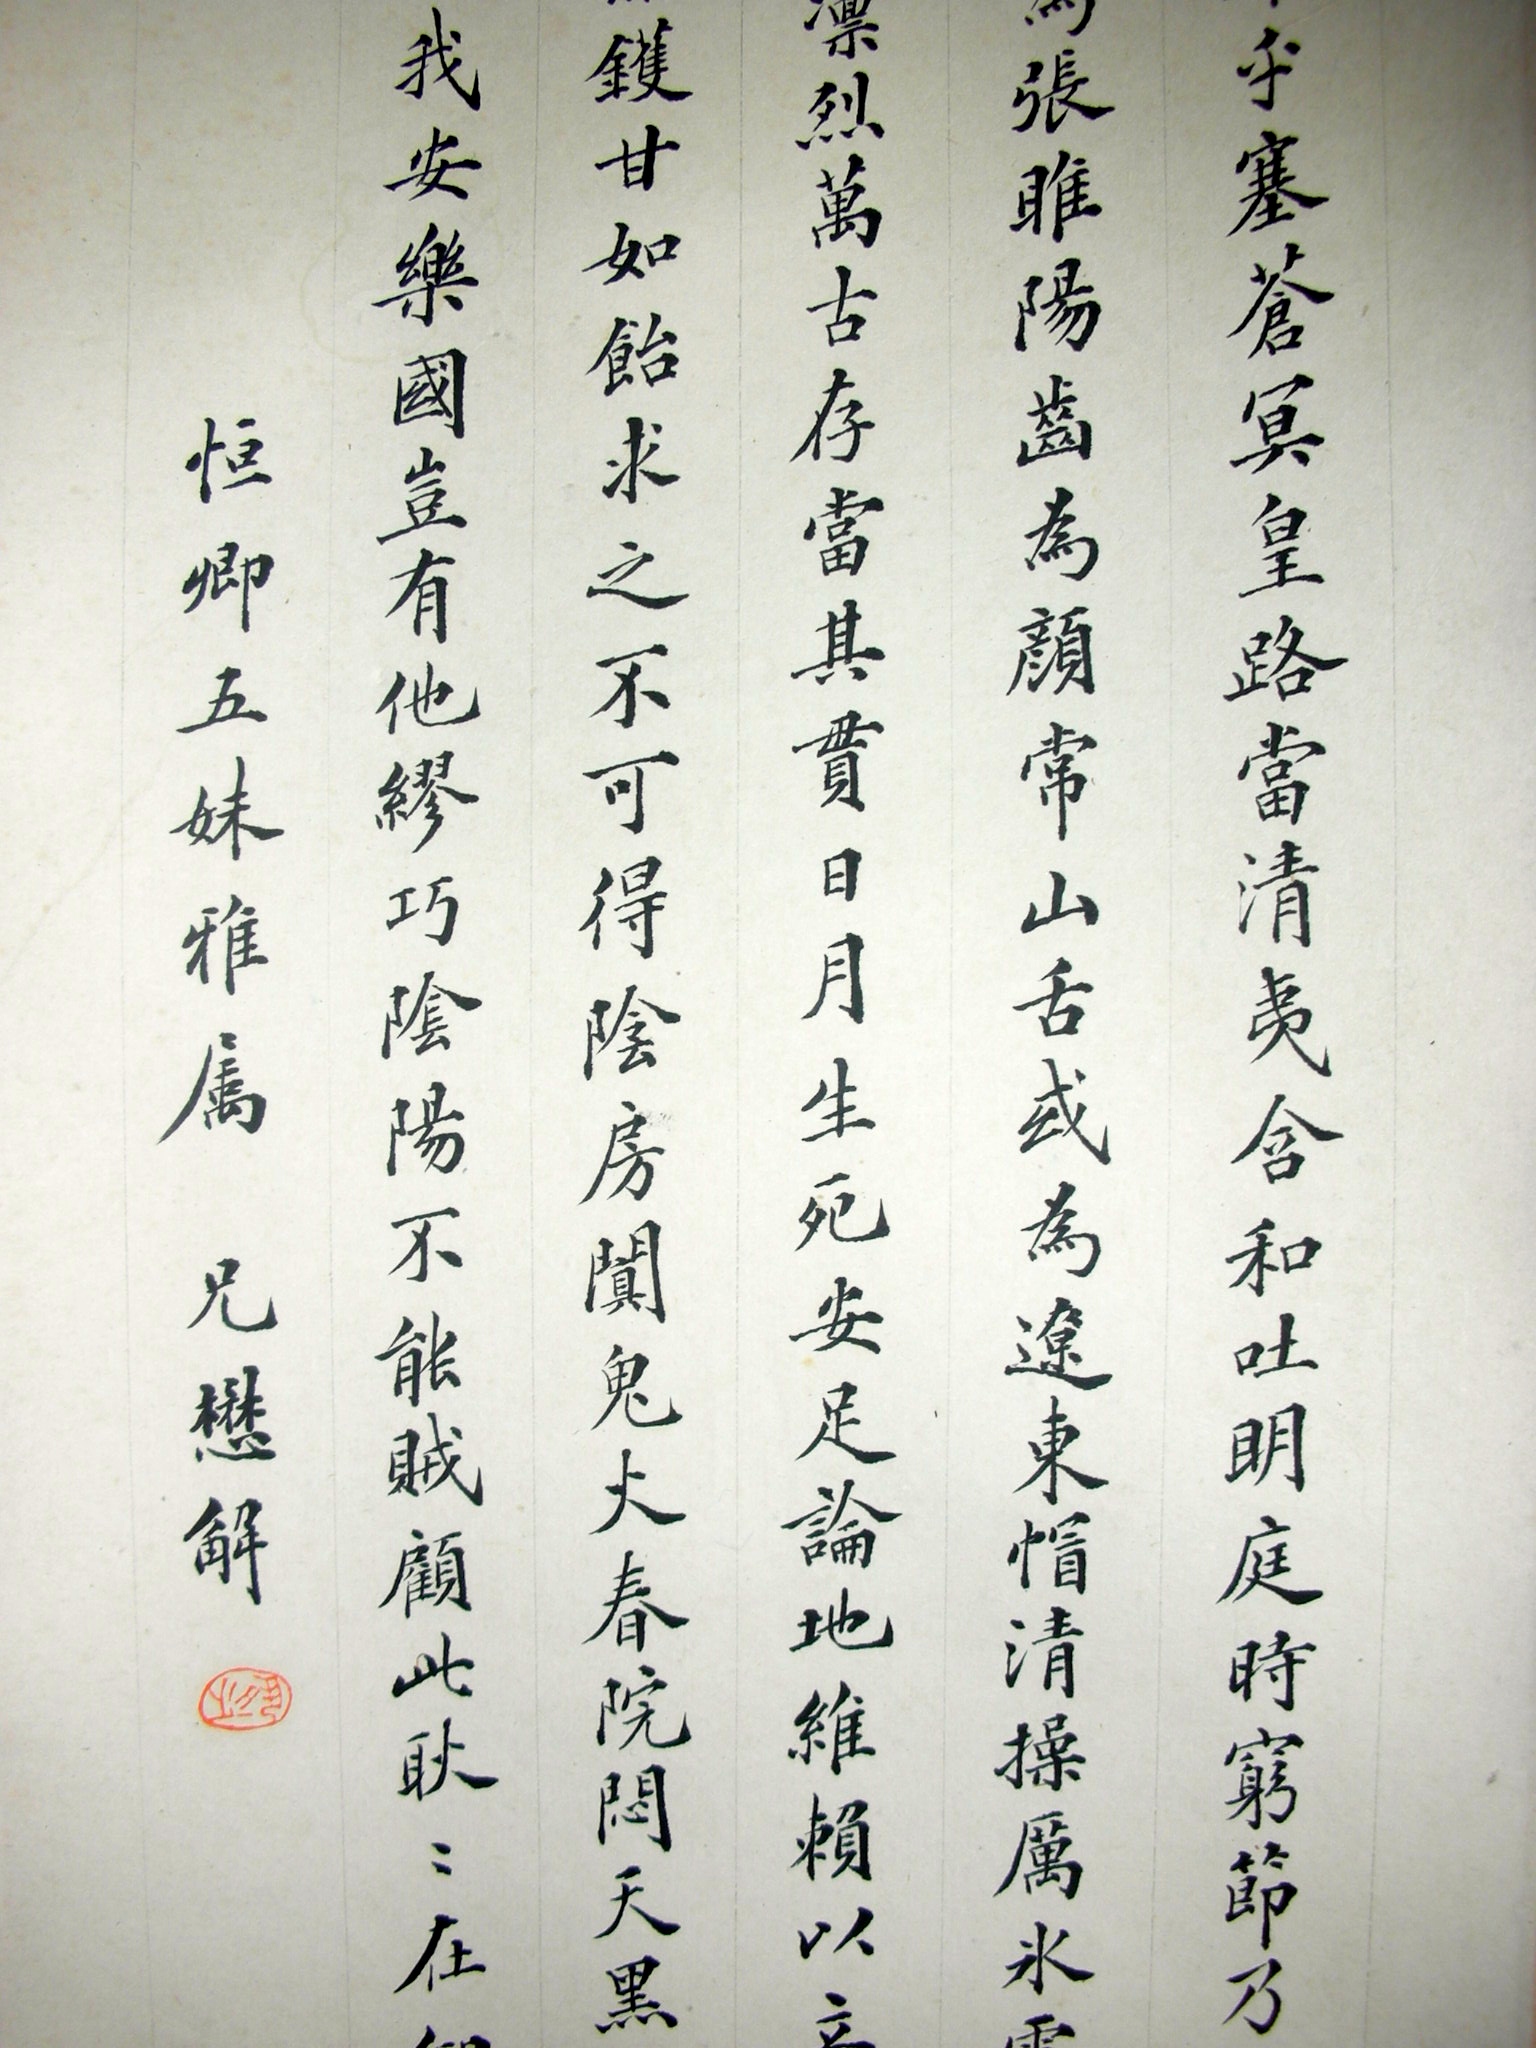 乎塞蒼冥皇路當清夷含和吐明庭時窮節乃
為張睢陽齒為顏常山舌或為遼東帽清操厲冰雪
凜烈萬古存當其貫日月生死安足論地維賴以立
鼎鑊甘如飴求之不可得陰房闐鬼火春院悶天黑
我安樂國豈有他繆巧陰陽不能賊顧此耿〻在
恒卿五妹雅属 兄懋解